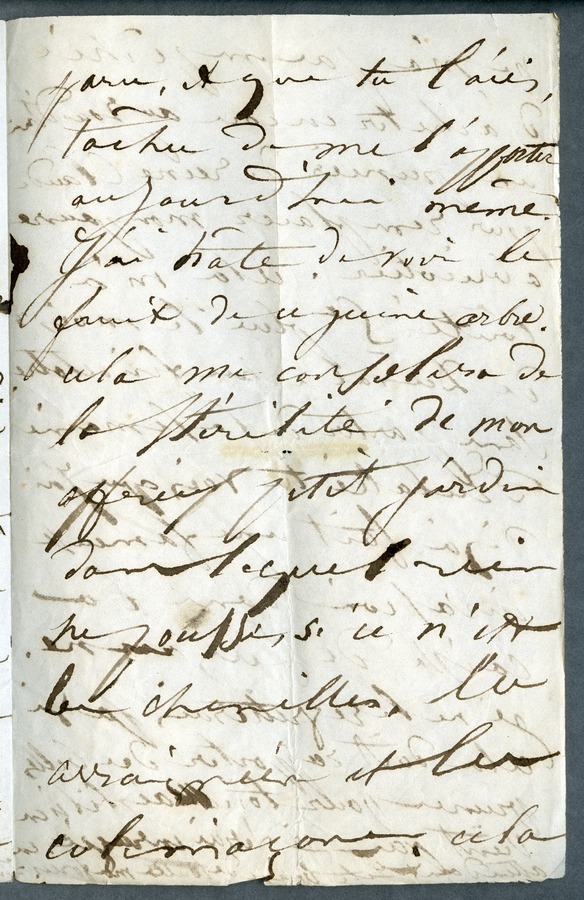 paru, et que tu l'aies,
tâche de me l'apporter
aujourd'hui même.
J'ai hâte de voir le
fruit de ce jeune arbre.
cela me consolera de
la stérilité de mon
affreux petit jardin
dans lequel rien
ne pousse, si ce n'est
les chenilles, les
araignées et les
colimaçons. cela